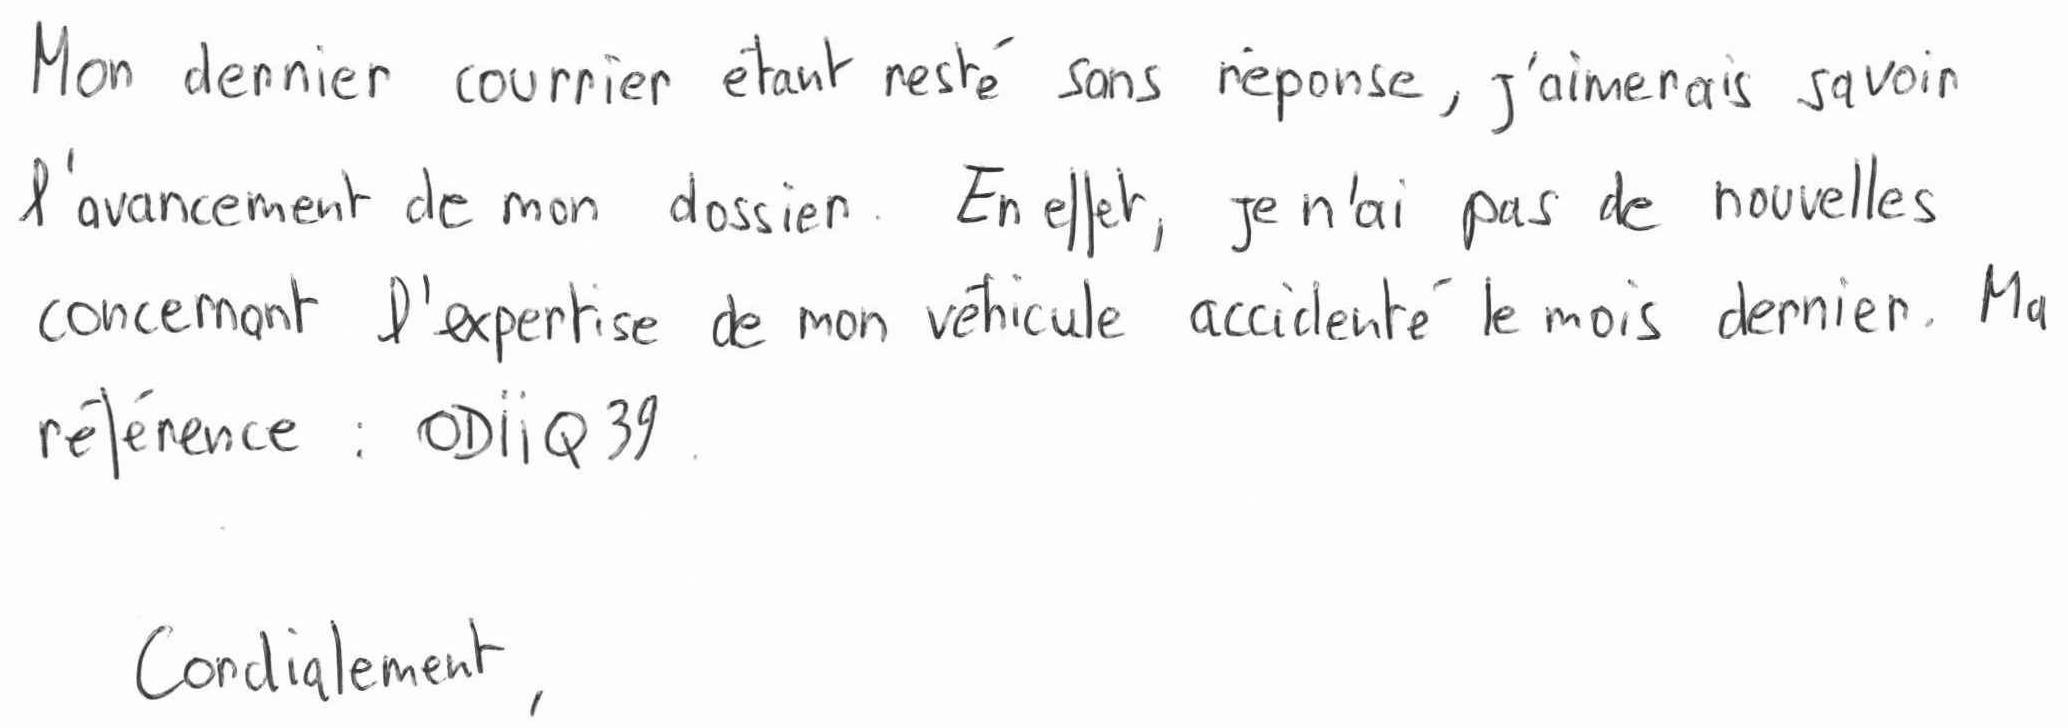 Mon dernier courrier étant resté sans réponse, j'aimerais savoir
l'avancement de mon dossier. En effet, je n'ai pas de nouvelles
concernant l'expertise de mon véhicule accidenté le mois dernier. Ma
référence : ODiiQ39.
Cordialement,